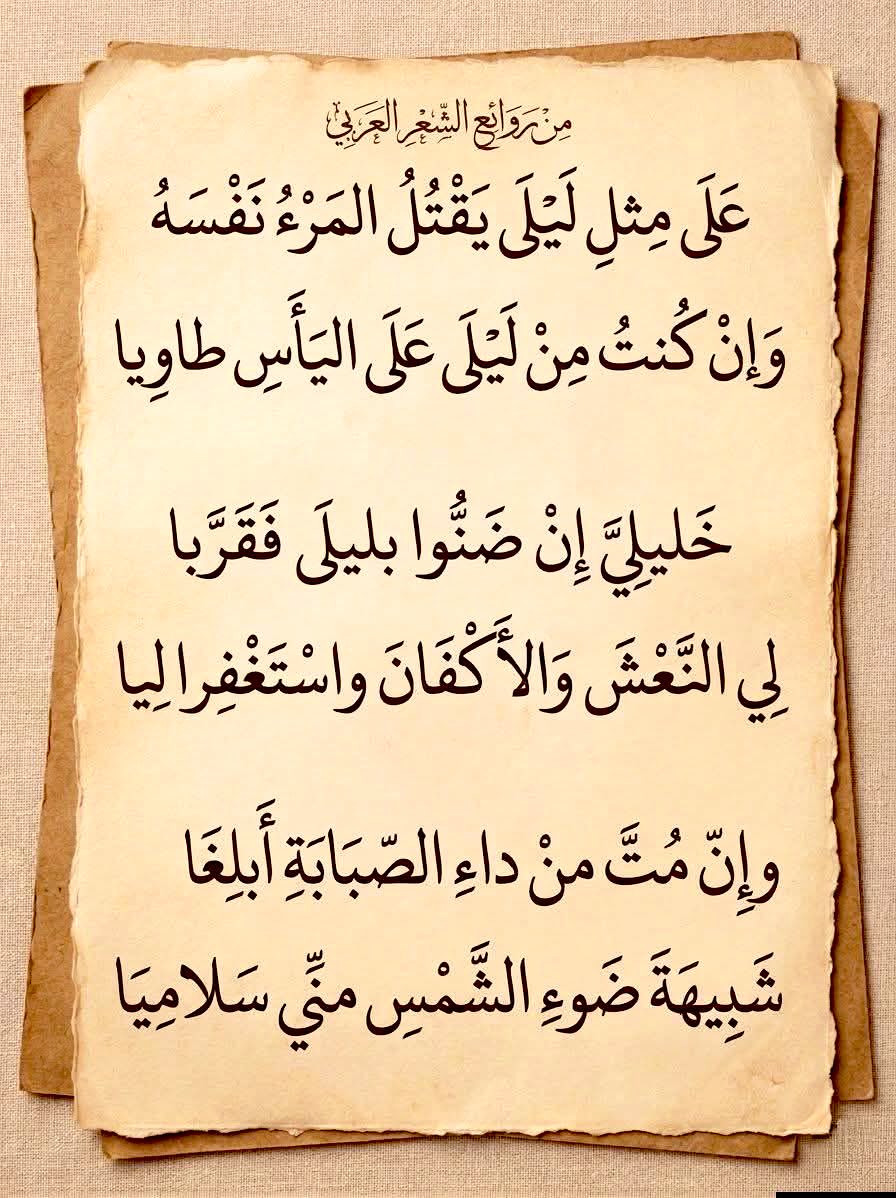 مِنْ رَوَائِعِ الشِّعْرِ العَرَبِي
عَلَى مِثلِ لَيْلَى يَقْتُلُ المَرْءُ نَفْسَهُ
وَإنْ كُنتُ مِنْ لَيْلَى عَلَى اليَأَسِ طاوِيا
خَليلِيَّ إِنْ ضَنُّوا بليلَى فَقَرَّبا
لِي النَّعْشَ وَالأَكْفَانَ واسْتَغْفِرا لِيا
وإِنّ مُتَّ منْ داءِ الصّبَابَةِ أَبلِغَا
شَبِيهَةَ ضَوءِ الشَّمْسِ منِّي سَلامِيَا